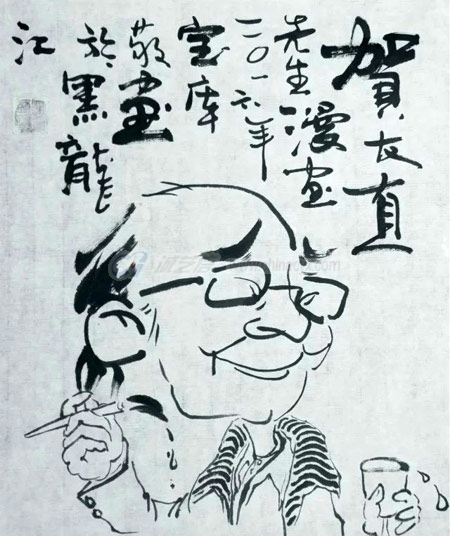 賀友直
先生漫画
二〇一六年
宝库
敬画
於黑龍
江